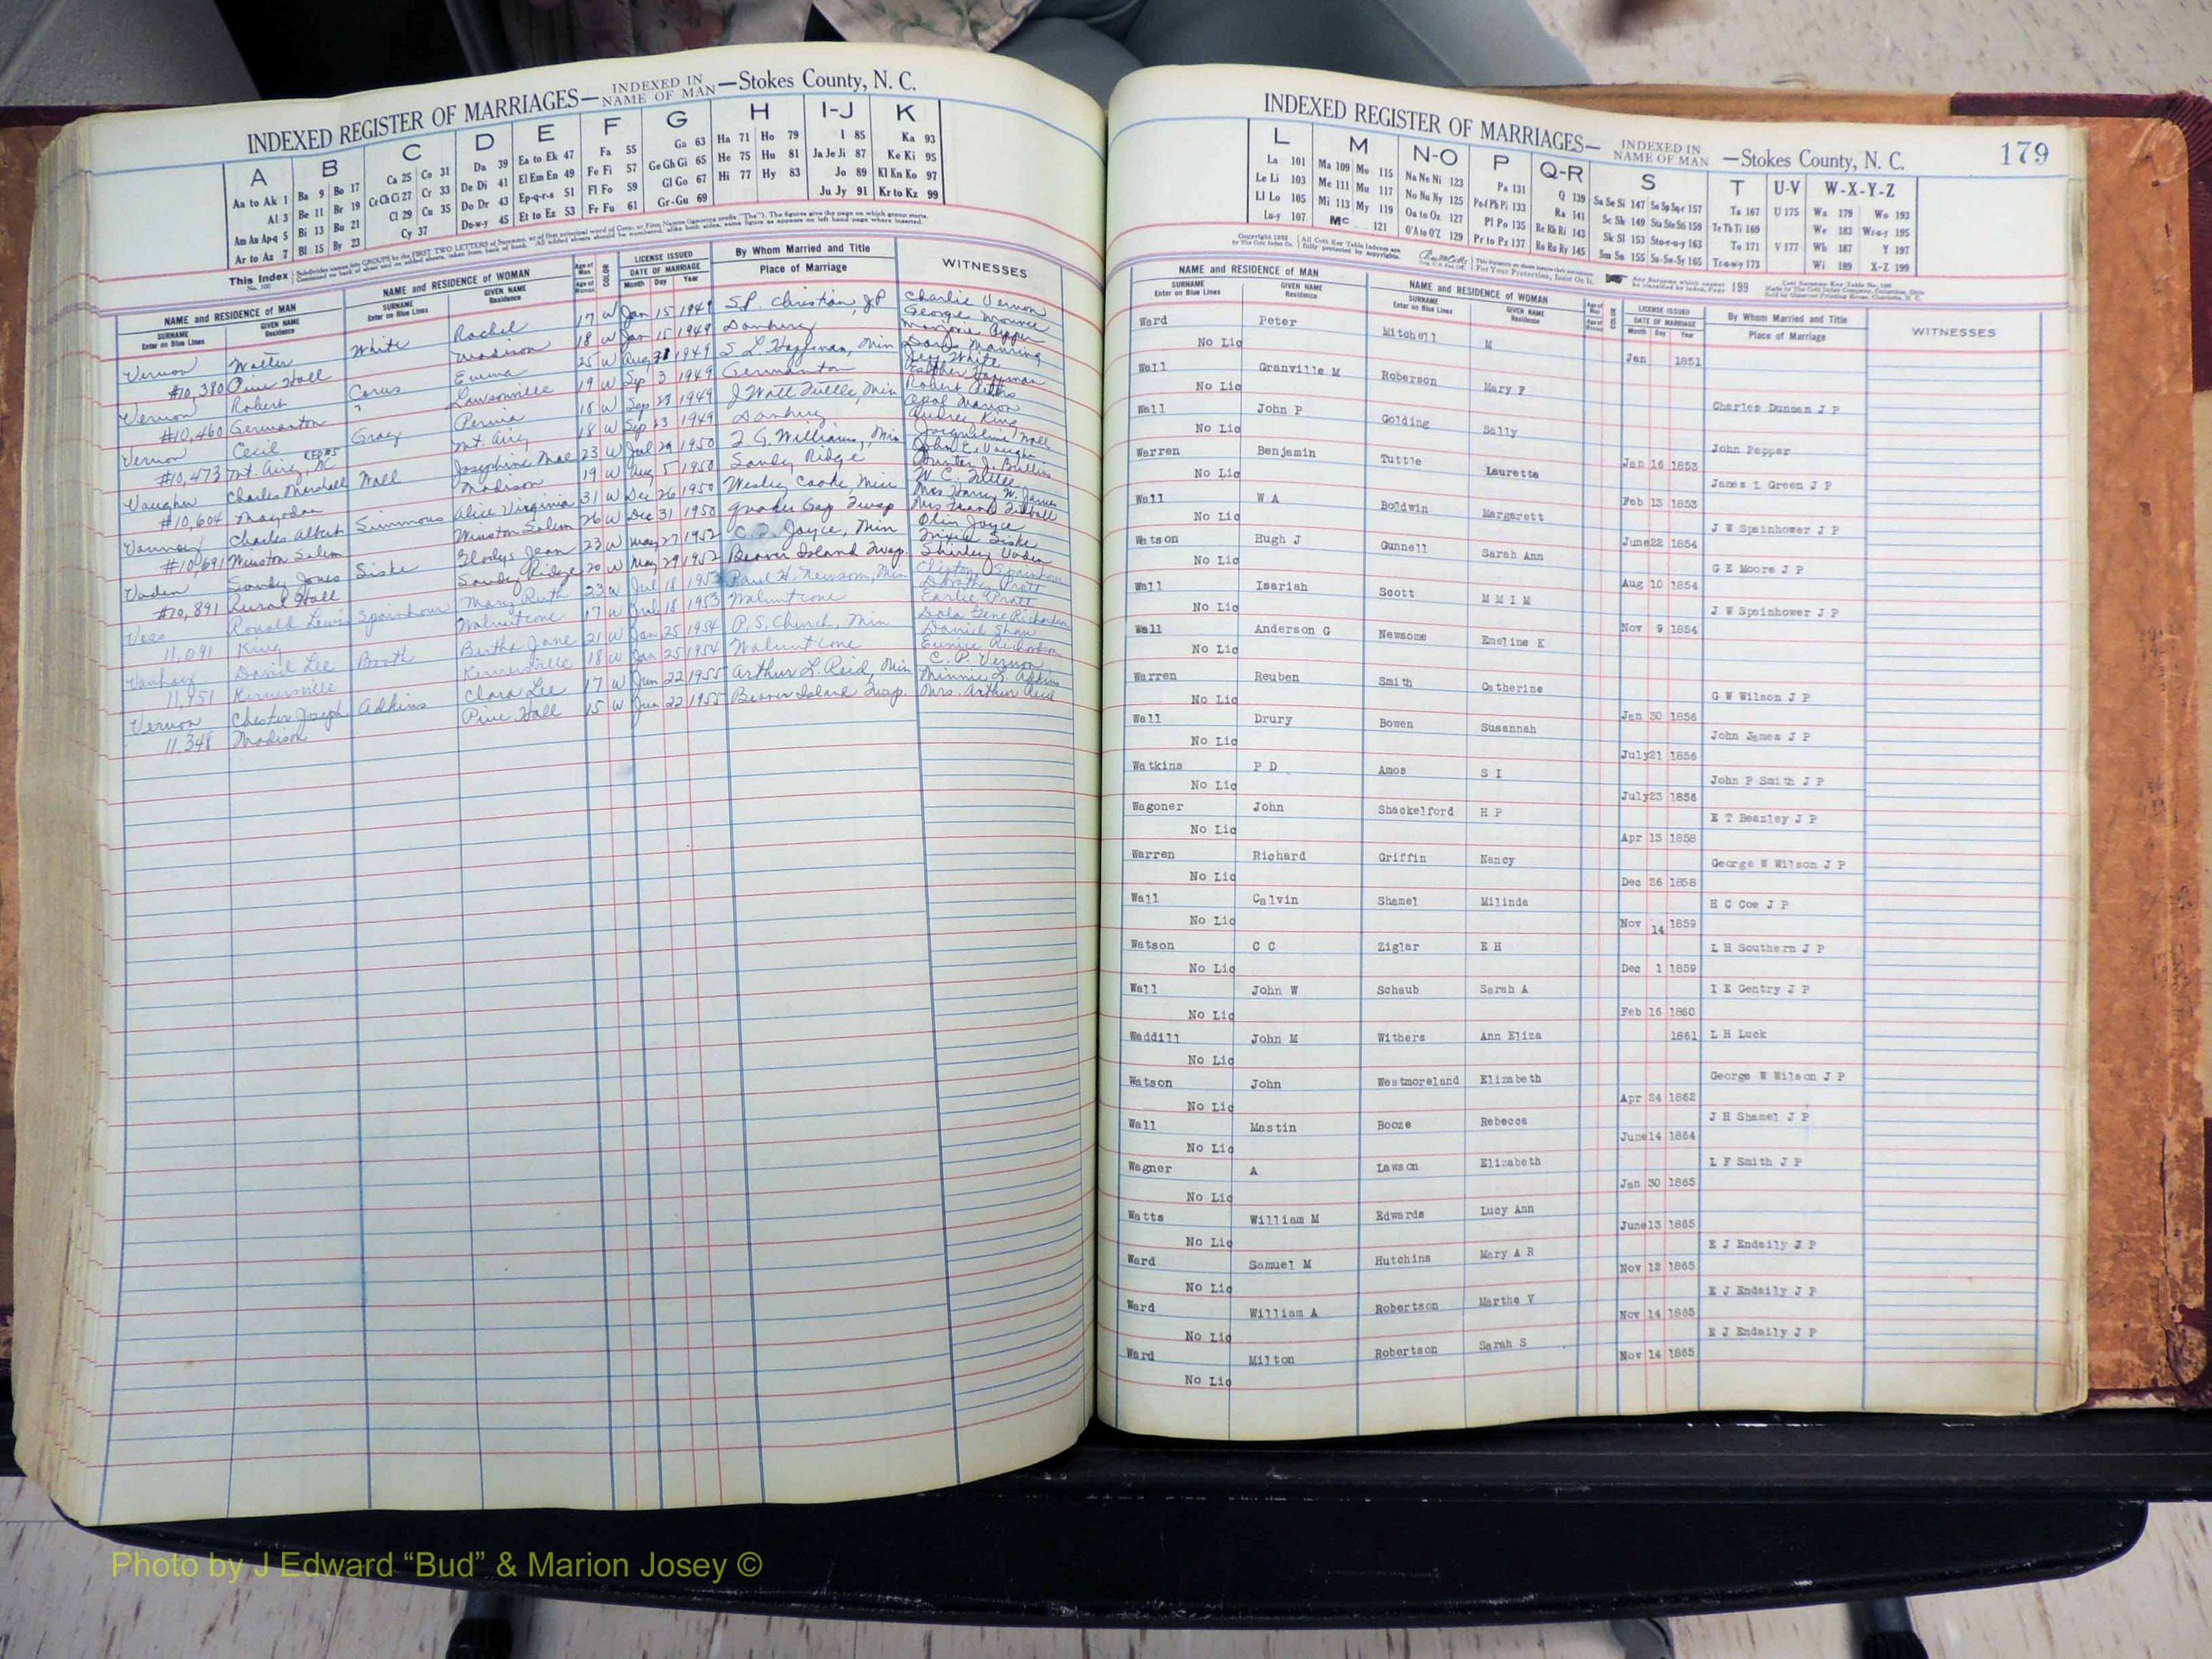 INDEXED REGISTER OF MARRIAGES— INDEXED IN NAME OF MAN —Stokes County, N. C.
A B C D E F G H I-J K
Aa to Ak 1 Ba 9 Bo 17 Ca 25 Co 31 Da 39 Ea to Ek 47 Fa 55 Ga 63 Ha 71 Ho 79 I 85 Ka 93
Al 3 Be 11 Br 19 Ce Ch Ci 27 Cr 33 De Di 41 El Em En 49 Fe Fi 57 Ge Gh Gi 65 He 75 Hu 81 Ja Je Ji 87 Ke Ki 95
Am An Ap-q 5 Bi 13 Bu 21 Cl 29 Cu 35 Do Dr 43 Ep-q-r-s 51 Fl Fo 59 Gl Go 67 Hi 77 Hy 83 Jo 89 Kl Kn Ko 97
Ar to Az 7 Bl 15 By 23 Cy 37 Du-w-y 45 Et to Ez 53 Fr Fu 61 Gr-Gu 69 Ju Jy 91 Kr to Kz 99
This Index No. 100
NAME and RESIDENCE OF MAN NAME and RESIDENCE OF WOMAN LICENSE ISSUED By Whom Married and Title WITNESSES
SURNAME Enter on Blue Lines GIVEN NAME Residence SURNAME Enter on Blue Lines GIVEN NAME Residence Age of Man Age of Woman COLOR DATE OF MARRIAGE Month Day Year Place of Marriage
Vernon Walter White Rachel 17 W Jan 15 1949 S.P. Christian, JP Charlie Vernon
#10,380 Pine Hall Madison 18 W Jan 15 1949 Danbury
Vernon Robert Emma 25 W Aug 1949 Min
#10,460 Germanton Lawsonville 19 W Sep 3 1949 Germanton
Vernon Cecil Gray 18 W Sep 23 1949 J Watt Tuttle, Min
#10,473 Mt. Airy, NC Mt. Airy 18 W Sep 23 1949 Danbury
Vaughn Charles Marshall Nall Josephine Mae 23 W Jul 29 1950 Williams, Min
#10,604 Mayodan Madison 19 W Aug 5 1950 Sandy Ridge
Charles Albert Simmons Alice Virginia 31 W Dec 26 1950 Wesley Cooke, Min
#10,691 Winston Salem Winston Salem 26 W Dec 31 1950 Quaker Gap Twsp
Vaden Sandy Jones Siske Gladys Jean 23 W May 27 1952 Joyce, Min Olin Joyce
#10,891 Rural Hall Sandy Ridge 20 W May 29 1952 Beaver Island Twsp. Shirley Vaden
Ronald Lewis Spainhour Mary Ruth 23 W Jul 18 1953 Paul H. Newsom, Min
11,091 King Walnut Cove 17 W Jul 18 1953 Walnut Cove
Daniel Lee Booth Bertha Jane 21 W Jan 25 1954 P. S. Church, Min Daniel Shaw
11,951 Kernersville Kernersville 18 W Jan 25 1954 Walnut Cove Eunice Richardson
Vernon Chester Joseph Adkins Clara Lee 17 W Jun 22 1955 Arthur L. Reid, Min C. P. Vernon
11,348 Madison Pine Hall 15 W Jun 22 1955 Beaver Island Twsp. Mrs. Arthur Reid
INDEXED REGISTER OF MARRIAGES— INDEXED IN NAME OF MAN —Stokes County, N. C. 179
L M N-O P Q-R S T U-V W-X-Y-Z
La 101 Ma 109 Mo 115 Na Ne Ni 123 Pa 131 Q 139 Sa Se Si 147 So Sp Sq-r 157 Ta 167 U 175 Wa 179 Wo 193
Le Li 103 Me 111 Mu 117 No Nu Ny 125 Pe-f Ph Pi 133 Ra 141 Sc Sh 149 Sta Ste Sti 159 Te Th Ti 169 We 183 Wr-u-y 195
Ll Lo 105 Mi 113 My 119 Oa to Oz 127 Pl Po 135 Re Rh Ri 143 Sk Sl 153 Sto-r-u-y 163 To 171 V 177 Wh 187 Y 197
Lu-y 107 Mc 121 O'A to O'Z 129 Pr to Pz 137 Ro Ru Ry 145 Sm Sn 155 Su-Sw-Sy 165 Tr-u-w-y 173 Wi 189 X-Z 199
NAME and RESIDENCE OF MAN NAME and RESIDENCE OF WOMAN LICENSE ISSUED By Whom Married and Title WITNESSES
SURNAME Enter on Blue Lines GIVEN NAME Residence SURNAME Enter on Blue Lines GIVEN NAME Residence Age of Man Age of Woman COLOR DATE OF MARRIAGE Month Day Year Place of Marriage
Ward Peter Mitchell M
No Lic Jan 1851
Wall Granville M Roberson Mary F
No Lic Charles Duncan J P
Wall John P Golding Sally
No Lic John Pepper
Warren Benjamin Tuttle Lauretta Jan 16 1853
No Lic James L Green J P
Wall W A Boldwin Margarett Feb 13 1853
No Lic J W Spainhower J P
Watson Hugh J Gunnell Sarah Ann June 22 1854
No Lic G E Moore J P
Wall Isariah Scott M M I M Aug 10 1854
No Lic J W Spainhower J P
Wall Anderson G Newsome Emeline K Nov 9 1854
No Lic
Warren Reuben Smith Catherine G W Wilson J P
No Lic Jan 30 1856
Wall Drury Bowen Susannah John James J P
No Lic July 21 1856
Watkins P D Amos S I John P Smith J P
No Lic July 23 1856
Wagoner John Shackelford H P E T Beazley J P
No Lic Apr 13 1858
Warren Richard Griffin Nancy George W Wilson J P
No Lic Dec 26 1858
Wall Calvin Shamel Milinda H C Coe J P
No Lic Nov 14 1859
Watson C C Ziglar E H L H Southern J P
No Lic Dec 1 1859
Wall John W Schaub Sarah A I E Gentry J P
No Lic Feb 16 1860
Waddill John M Withers Ann Eliza 1861 L H Luck
No Lic
Watson John Westmoreland Elizabeth George W Wilson J P
No Lic Apr 24 1862
Wall Mastin Booze Rebecca J H Shamel J P
No Lic June 14 1864
Wagner A Lawson Elizabeth L F Smith J P
No Lic Jan 30 1865
Watts William M Edwards Lucy Ann
No Lic June 13 1865
Ward Samuel M Hutchins Mary A R E J Endaily J P
No Lic Nov 12 1865
Ward William A Robertson Martha V E J Endaily J P
No Lic Nov 14 1865
Ward Milton Robertson Sarah S E J Endaily J P
No Lic Nov 14 1865
Photo by J Edward “Bud” & Marion Josey ©